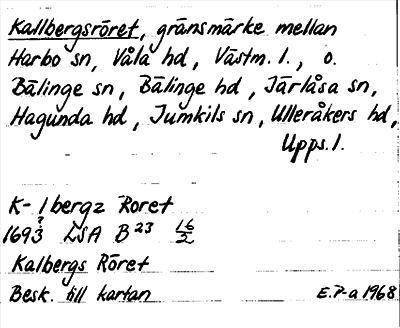 Kallbergsröret, gränsmärke mellan
Harbo sn, Våla hd, Västm. l., o.
Bälinge sn, Bälinge hd, Järlåsa sn,
Hagunda hd, Jumkils sn, Ulleråkers hd,
Upps. l.
K- lbergz Röret
1693 LSA B 23 16/2
Kalbergs Röret
Besk. till kartan E.P-a 1968